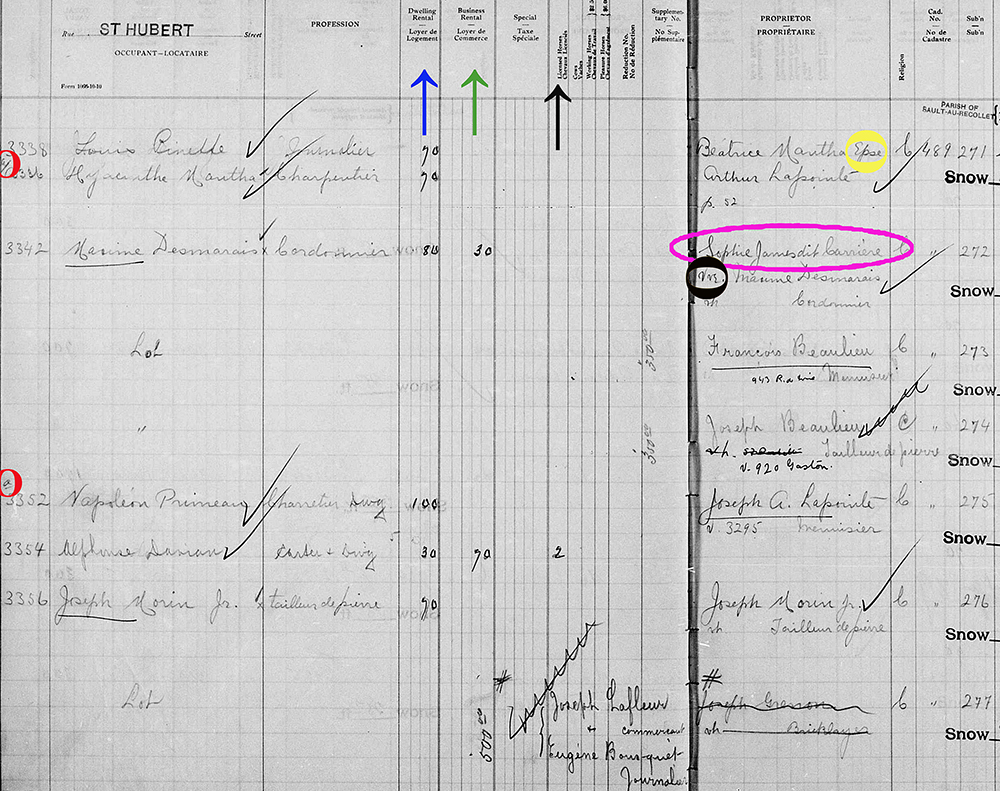 Rue ST HUBERT Street
OCCUPANT-LOCATAIRE
Form 1095-10-10
PROFESSION
Dwelling Rental
Loyer de Logement
Business Rental
Loyer de Commerce
Special
Taxe Spéciale
Licensed Horses
Chevaux Licensiés
Cows
Vaches
Working Horses
Chevaux de Travail
Pleasure Horses
Chevaux d'agrément
Reduction No.
No de Réduction
Supplementary No.
No Supplémentaire
PROPRIETOR
PROPRIÉTAIRE
Religion
Cad. No.
No de Cadastre
Sub'n
Sub'n
PARISH OF
SAULT-AU-RECOLLET
3338 Louis Pinette Journalier 70 Béatrice Mantha Epse C 489 271
3336 Hyacinthe Mantha Charpentier 70 Arthur Lapointe Snow
p. 52
3342 Maxime Desmarais x Cordonnier 80 30 Sophie James dit Carrière C " 272
Vve. Maxime Desmarais Snow
rh Cordonnier
Lot 350 00 François Beaulieu C " 273
Menuisier Snow
" 350 00 Joseph Beaulieu C " 274
rh. Tailleur de pierre
v. 920 Gaston. Snow
a
3352 Napoléon Primeau Charretier Dwg 100 Joseph A. Lapointe C " 275
v. 3295 Menuisier Snow
3354 Alphonse Carter & Dwg 30 70 2
3356 Joseph Morin Jr. x tailleur de pierre 70 Joseph Morin jr. C " 276
rh Tailleur de pierre Snow
Lot 500 00 # Joseph Lafleur # Joseph C " 277
& commerçant rh Bricklayer Snow
Eugène Bousquet
Journalier